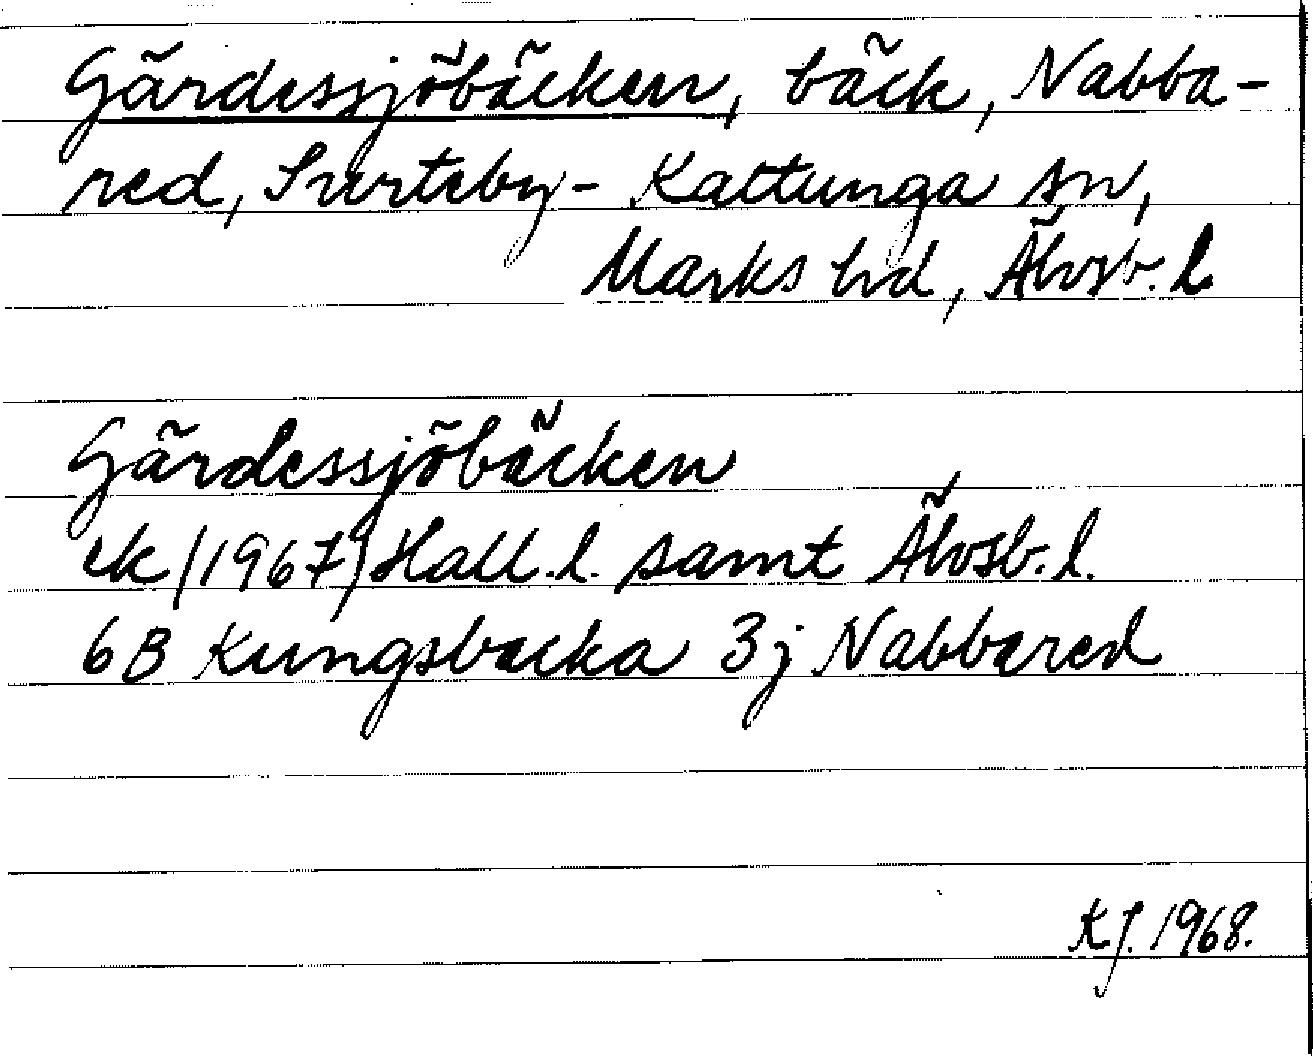 Gärdessjöbäcken, bäck, Nabba-
red, Surteby-Kattunga sn,
Marks hd, Älvsb. l.
Gärdessjöbäcken
ek (1967) Hall. l. samt Älvsb. l.
6B Kungsbacka 3j Nabbared
KJ. 1968.